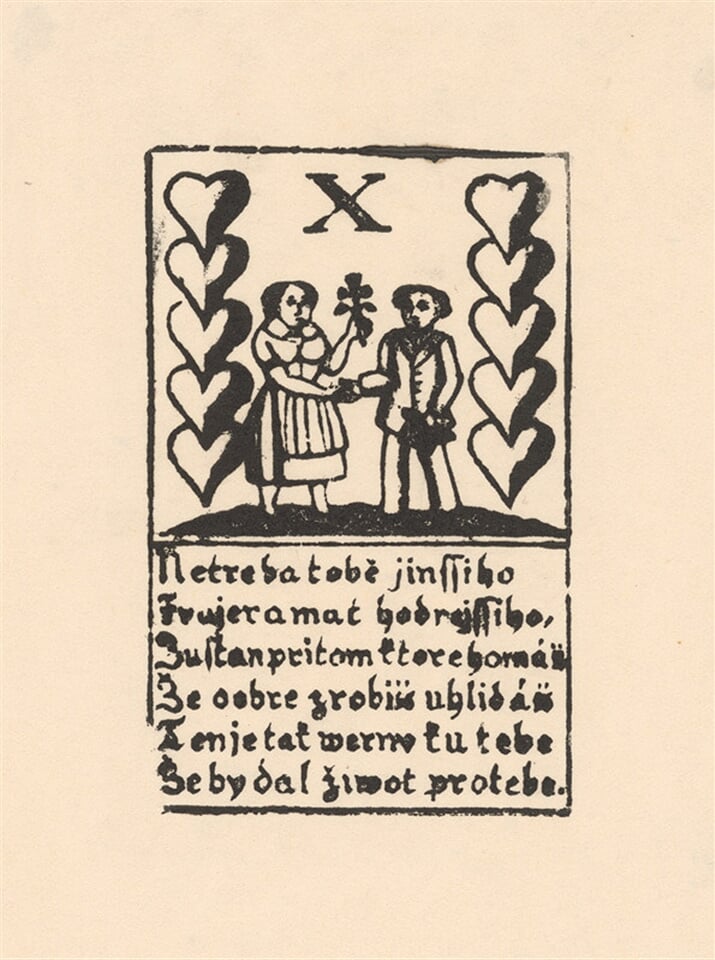 X
Netreba tobě jinssiho
hodnejssiho,
Zustan pritom ktoreho máš
Že dobre zrobiš uhlidáš
Ten je tak werny ku tebe
Žeby dal žiwot pro tebe.